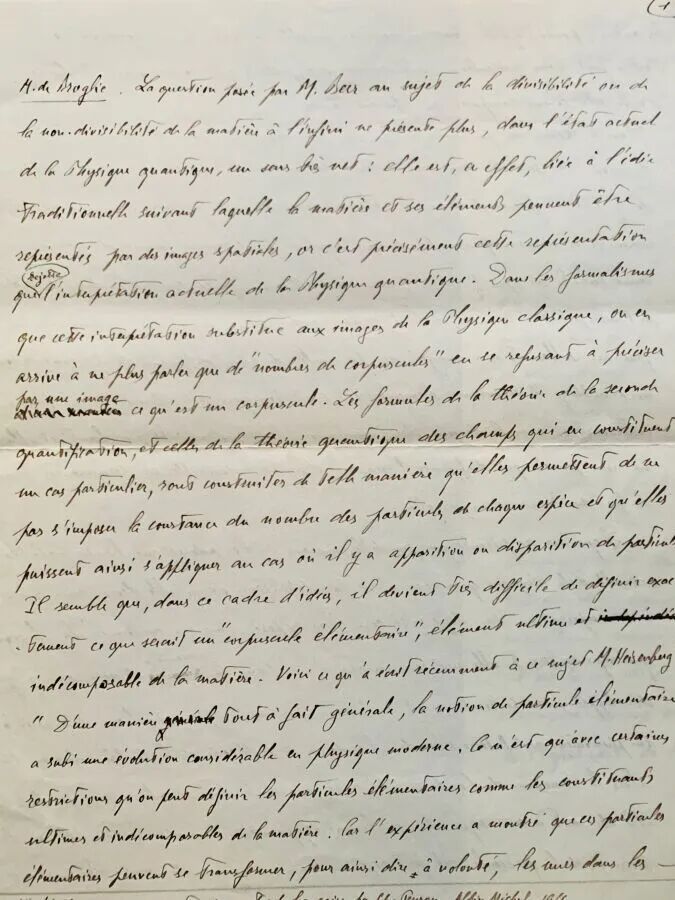 (1
M. de Broglie. La question posée par M. Beer au sujet de la divisibilité ou de
la non-divisibilité de la matière à l'infini ne présente plus, dans l'état actuel
de la Physique quantique, un sens très net : elle est, en effet, liée à l'idée
traditionnelle suivant laquelle la matière et ses éléments peuvent être
représentés par des images spatiales, or c'est précisément cette représentation
rejette
que l'interprétation actuelle de la Physique quantique. Dans les formalismes
que cette interprétation substitue aux images de la Physique classique, on en
arrive à ne plus parler que de "nombres de corpuscules" en se refusant à préciser
par une image
ce qu'est un corpuscule. Les formules de la théorie de la seconde
quantification, et celles de la théorie quantique des champs qui en constituent
un cas particulier, sont construites de telle manière qu'elles permettent de ne
pas s'imposer la constance du nombre des particules de chaque espèce et qu'elles
puissent ainsi s'appliquer au cas où il y a apparition ou disparition de particul
Il semble que, dans ce cadre d'idées, il devient très difficile de définir exac
-tement ce que serait un "corpuscule élémentaire", élément ultime et
indécomposable de la matière. Voici ce qu'a écrit récemment à ce sujet M. Heisenberg
" D'une manière tout à fait générale, la notion de particule élémentaire
a subi une évolution considérable en physique moderne. Ce n'est qu'avec certaines
restrictions qu'on peut définir les particules élémentaires comme les constituants
ultimes et indécomposables de la matière. Car l'expérience a montré que ces particules
élémentaires peuvent se transformer, pour ainsi dire, à volonté, les unes dans les
Albin Michel